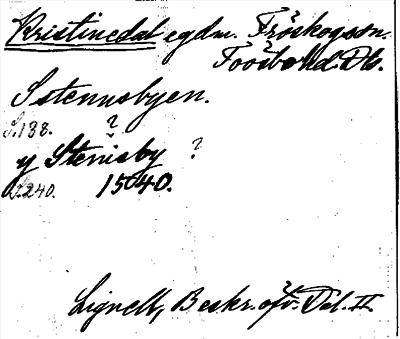 Kristinedal egdm. Fröskogssn.
Tössbo hd. Dls.
Sstennsbyen.
S.188. ?
y Stenisby ?
S.240. 1540.
Lignell, Beskr. öfv. Dal. II.